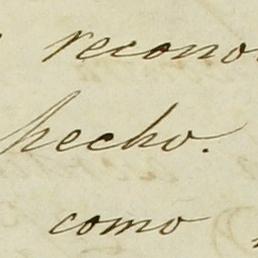 recono
hecho.
como